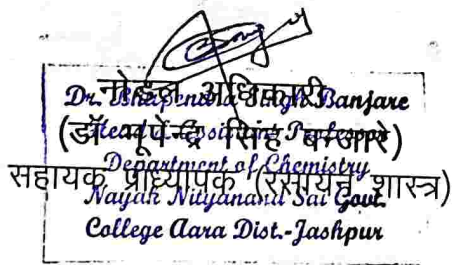 नोडल अधिकारी
Dr. Bhupendra Singh Banjare
(डॉ भूपेन्द्र सिंह बन्जारे)
Head &
Department of Chemistry
सहायक प्राध्यापक (रसायन शास्त्र)
Nayak Nityanand Sai Govt.
College Aara Dist.-Jashpur